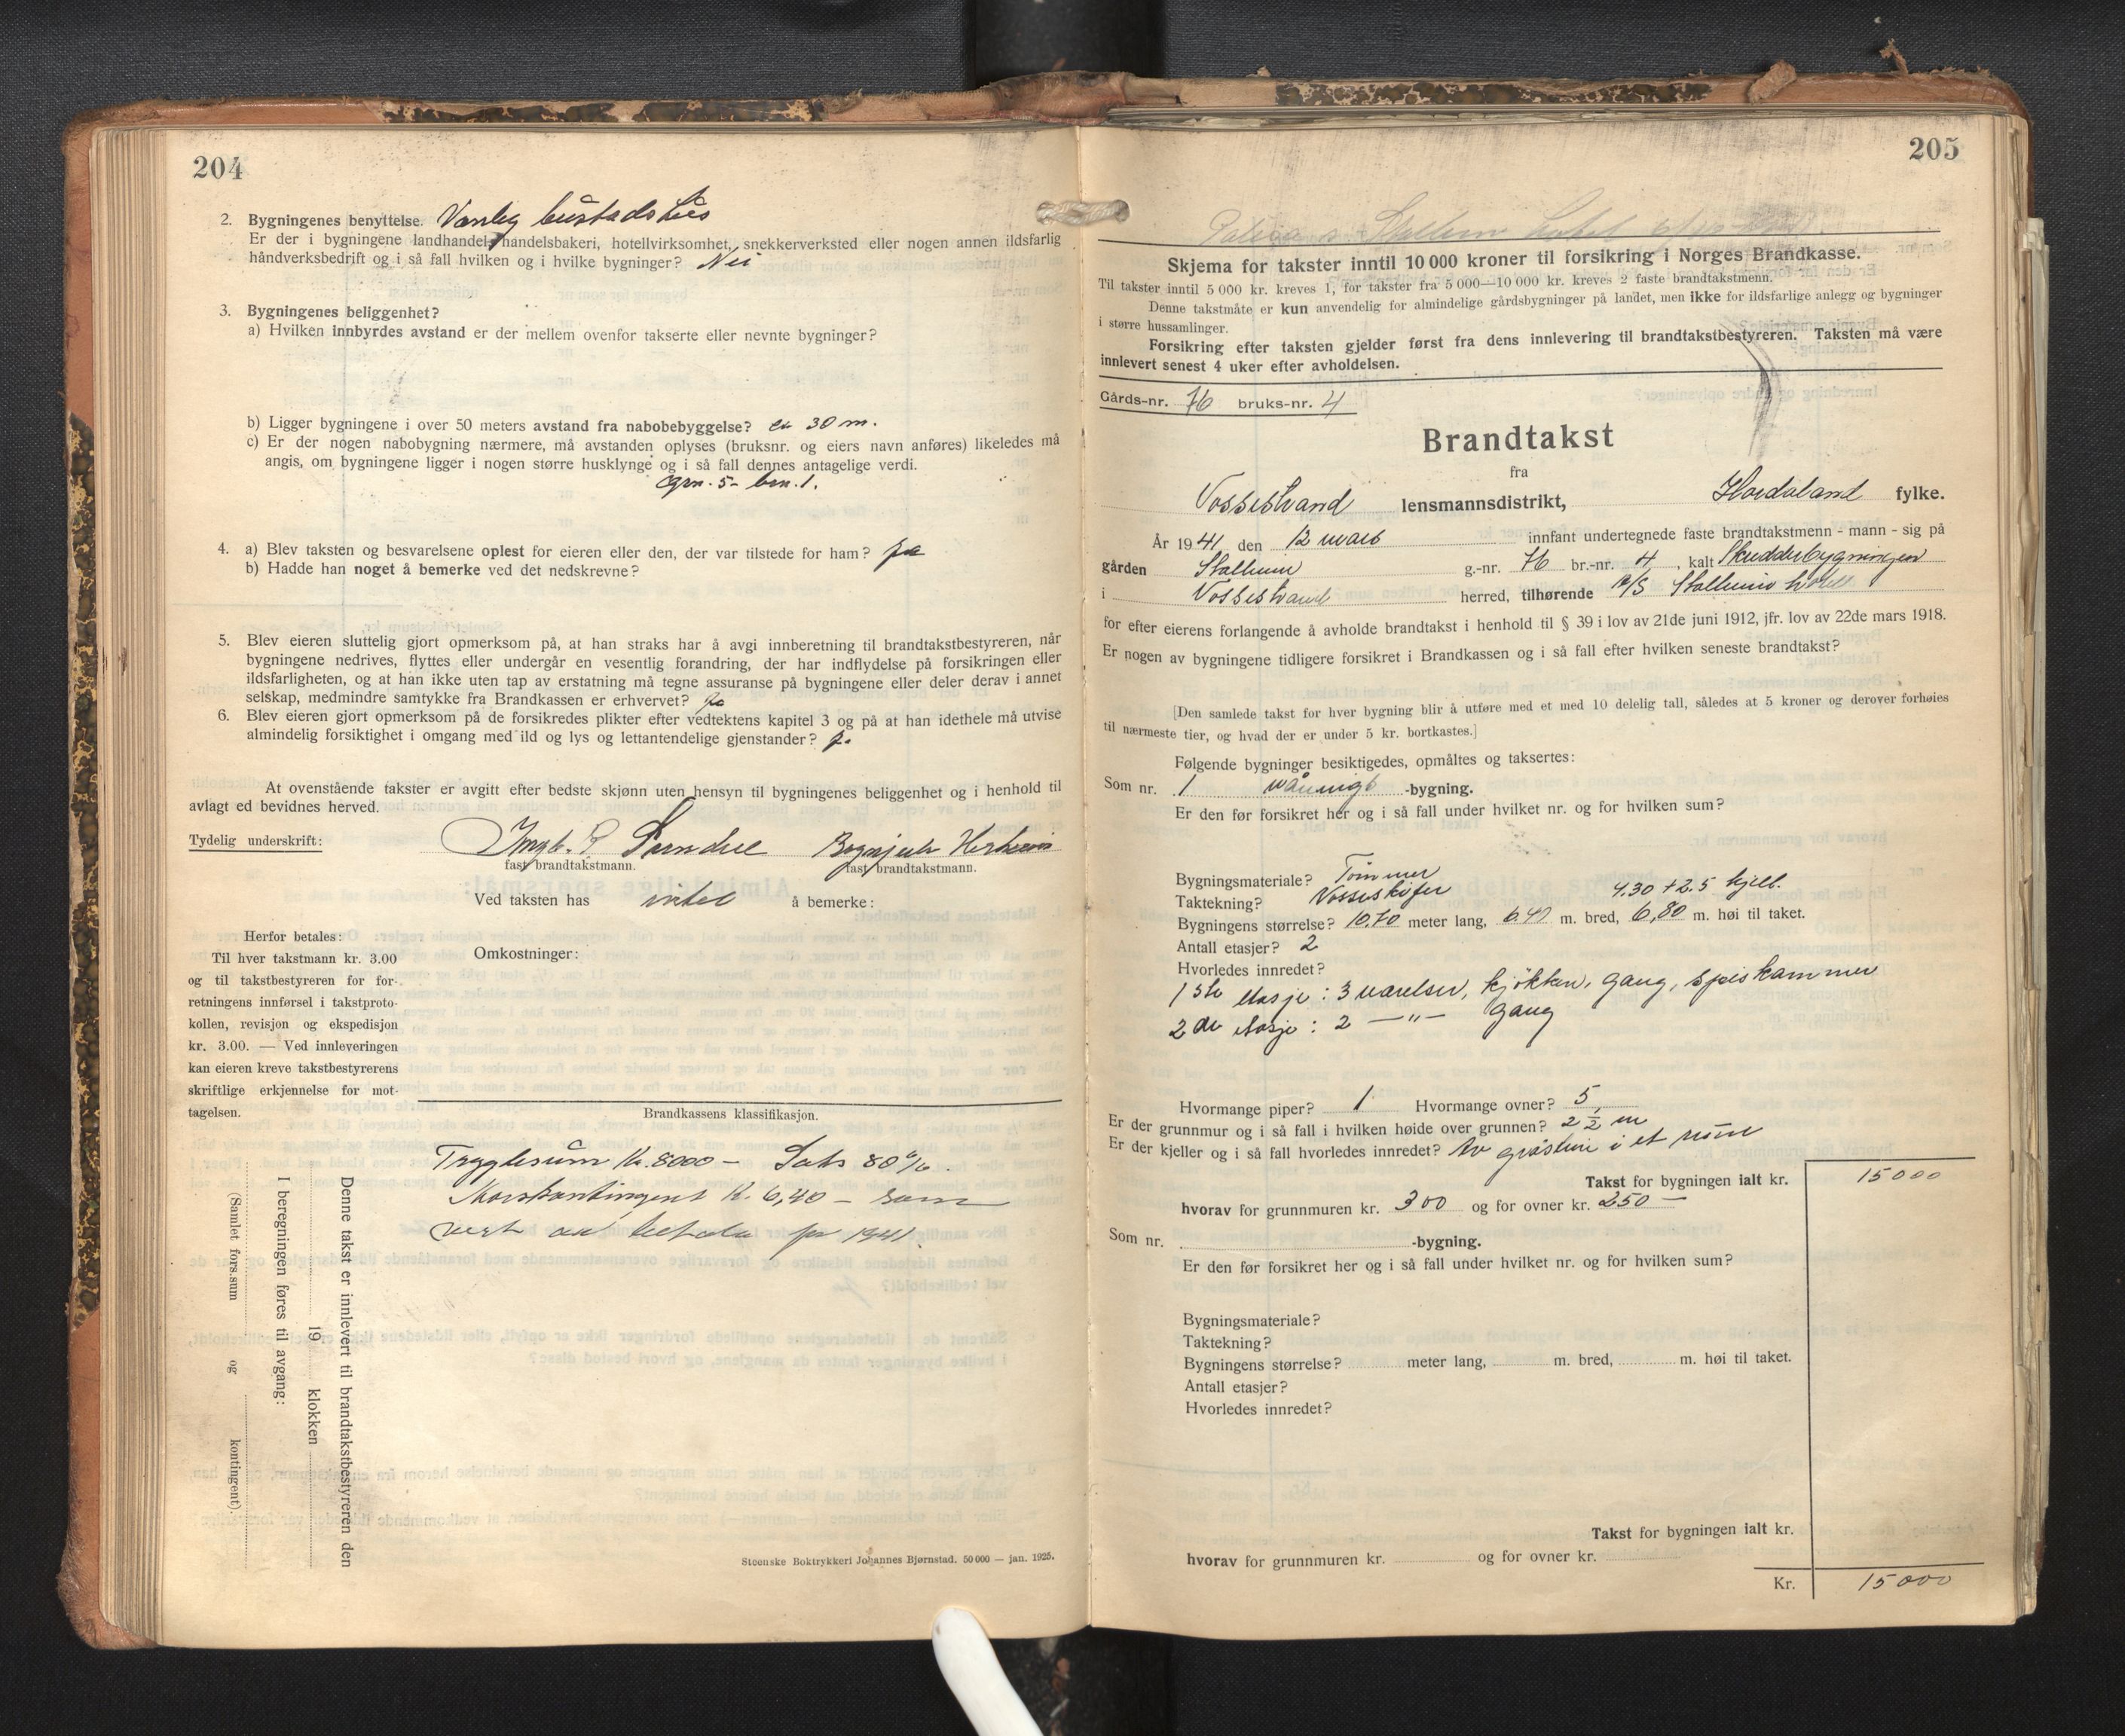 204
2. Bygningenes benyttelse. Vanleg bustadshus
Er der i bygningene landhandel, handelsbakeri, hotellvirksomhet, snekkerverksted eller nogen annen ildsfarlig
håndverksbedrift og i så fall hvilken og i hvilke bygninger? Nei
3. Bygningenes beliggenhet?
a) Hvilken innbyrdes avstand er der mellem ovenfor takserte eller nevnte bygninger?
b) Ligger bygningene i over 50 meters avstand fra nabobebyggelse? 30 m.
c) Er der nogen nabobygning nærmere, må avstanden oplyses (bruksnr. og eiers navn anføres) likeledes må
angis, om bygningene ligger i nogen større husklynge og i så fall dennes antagelige verdi.
grn. 5 - brn. 1.
4. a) Blev taksten og besvarelsene oplest for eieren eller den, der var tilstede for ham? ja
b) Hadde han noget å bemerke ved det nedskrevne?
5. Blev eieren sluttelig gjort opmerksom på, at han straks har å avgi innberetning til brandtakstbestyreren, når
bygningene nedrives, flyttes eller undergår en vesentlig forandring, der har indflydelse på forsikringen eller
ildsfarligheten, og at han ikke uten tap av erstatning må tegne assuranse på bygningene eller deler derav i annet
selskap, medmindre samtykke fra Brandkassen er erhvervet? ja
6. Blev eieren gjort opmerksom på de forsikredes plikter efter vedtektens kapitel 3 og på at han idethele må utvise
almindelig forsiktighet i omgang med ild og lys og lettantendelige gjenstander? ja
At ovenstående takster er avgitt efter bedste skjønn uten hensyn til bygningenes beliggenhet og i henhold til
avlagt ed bevidnes herved.
Tydelig underskrift:
fast brandtakstmann. fast brandtakstmann.
Ved taksten has intet å bemerke:
Herfor betales:
Til hver takstmann kr. 3.00
og til takstbestyreren for for-
retningens innførsel i takstproto-
kollen, revisjon og ekspedisjon
kr. 3.00. — Ved innleveringen
kan eieren kreve takstbestyrerens
skriftlige erkjennelse for mot-
tagelsen.
Omkostninger:
Brandkassens klassifikasjon.
Trygdesum Kr. 8000 - Sats 80%.
Årskontingent Kr. 6,40 - som
vert at betala for 1941.
Denne takst er innlevert til brandtakstbestyreren den
19 klokken
I beregningen føres til avgang:
(Samlet fors.sum og kontingent).
Steenske Boktrykkeri Johannes Bjørnstad. 50 000 — jan. 1925.
205
Stalheim hotel
Skjema for takster inntil 10 000 kroner til forsikring i Norges Brandkasse.
Til takster inntil 5 000 kr. kreves 1, for takster fra 5 000—10 000 kr. kreves 2 faste brandtakstmenn.
Denne takstmåte er kun anvendelig for almindelige gårdsbygninger på landet, men ikke for ildsfarlige anlegg og bygninger
i større hussamlinger.
Forsikring efter taksten gjelder først fra dens innlevering til brandtakstbestyreren. Taksten må være
innlevert senest 4 uker efter avholdelsen.
Gårds-nr. 76 bruks-nr. 4
Brandtakst
fra
Vossestrand lensmannsdistrikt, Hordaland fylke.
År 1941 den 12 mars innfant undertegnede faste brandtakstmenn - mann - sig på
gården Stalheim g.-nr. 76 br.-nr. 4, kalt Skredderbygningen
i Vossestrand herred, tilhørende A/S Stalheim hotell
for efter eierens forlangende å avholde brandtakst i henhold til § 39 i lov av 21de juni 1912, jfr. lov av 22de mars 1918.
Er nogen av bygningene tidligere forsikret i Brandkassen og i så fall efter hvilken seneste brandtakst?
[Den samlede takst for hver bygning blir å utføre med et med 10 delelig tall, således at 5 kroner og derover forhøies
til nærmeste tier, og hvad der er under 5 kr. bortkastes.]
Følgende bygninger besiktigedes, opmåltes og taksertes:
Som nr. 1 våningb -bygning.
Er den før forsikret her og i så fall under hvilket nr. og for hvilken sum?
Bygningsmateriale? Tömmer
Taktekning? Vosseskifer 4.30 + 2.5 kjell.
Bygningens størrelse? 10.70 meter lang, 6.47 m. bred, 6,80 m. høi til taket.
Antall etasjer? 2
Hvorledes innredet?
1ste etasje: 3 værelser, kjøkken, gang, spiskammer
2de etasje: 2 —"— gang
Hvormange piper? 1 Hvormange ovner? 5
Er der grunnmur og i så fall i hvilken høide over grunnen? 2 ½ m
Er der kjeller og i så fall hvorledes innredet? Av gråstein i et rum
Takst for bygningen ialt kr. 15000
hvorav for grunnmuren kr. 300 og for ovner kr. 250 —
Som nr. -bygning.
Er den før forsikret her og i så fall under hvilket nr. og for hvilken sum?
Bygningsmateriale?
Taktekning?
Bygningens størrelse? meter lang, m. bred, m. høi til taket.
Antall etasjer?
Hvorledes innredet?
Takst for bygningen ialt kr.
hvorav for grunnmuren kr. og for ovner kr.
Kr. 15000